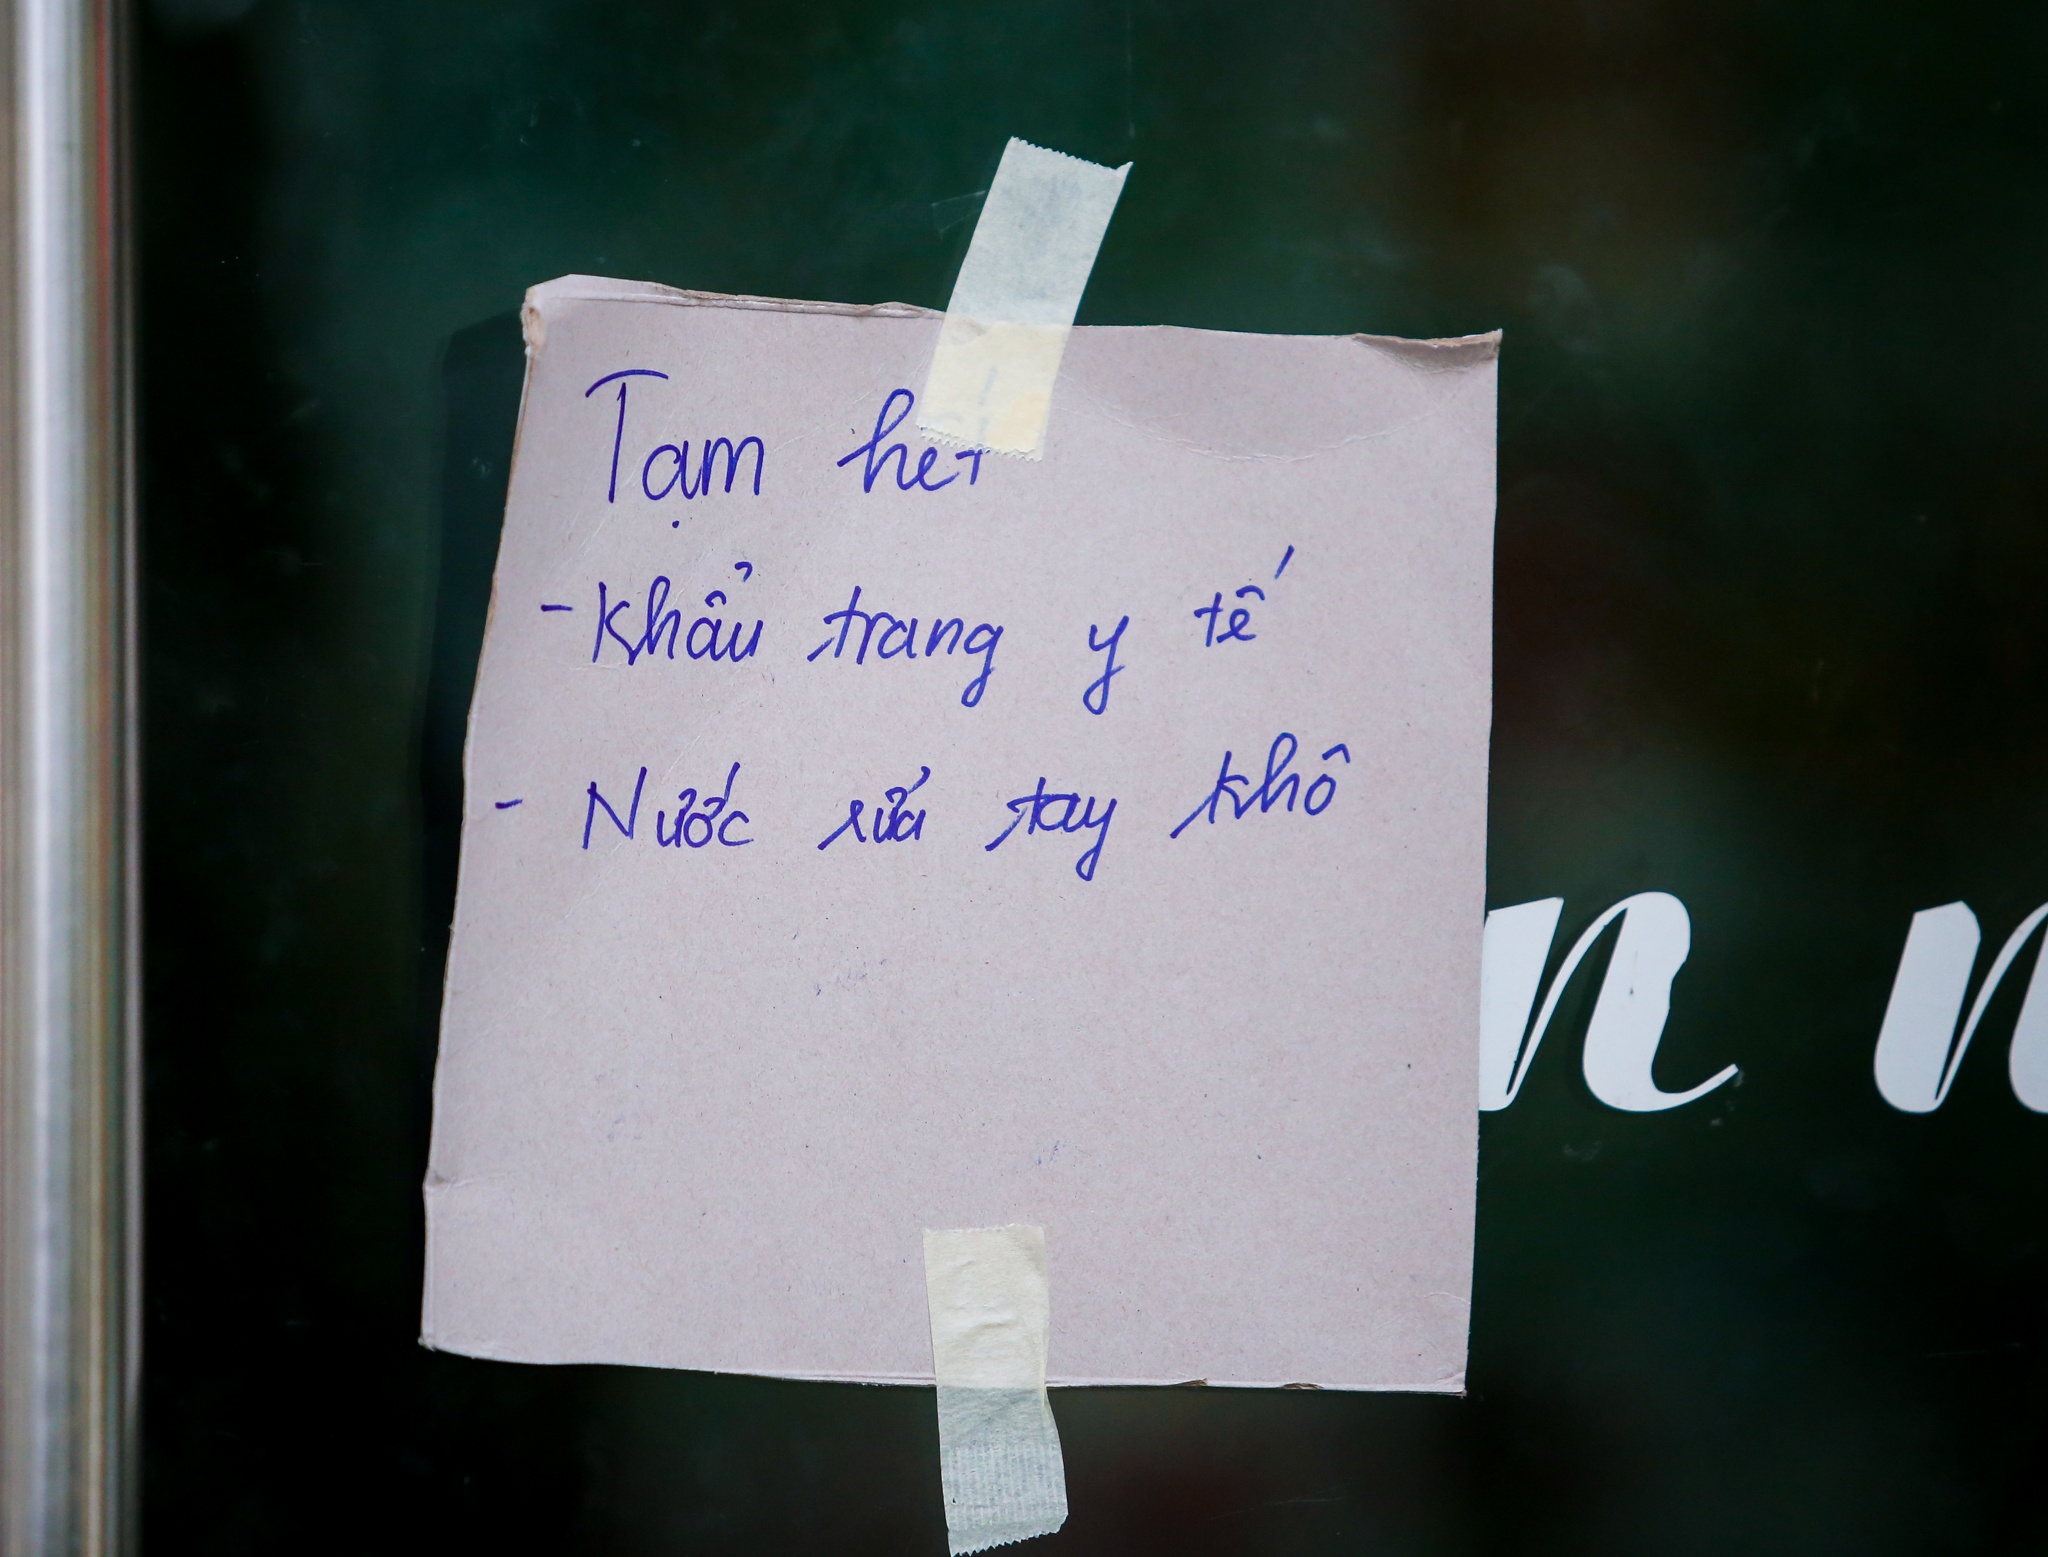 Tạm hết
- Khẩu trang y tế
- Nước rửa tay khô
n n